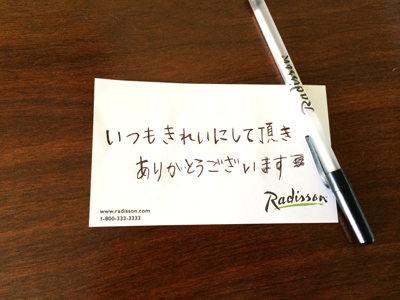 いつもきれいにして頂き
ありがとうございます
www.radisson.com
1-800-333-3333
Radisson
Radisson